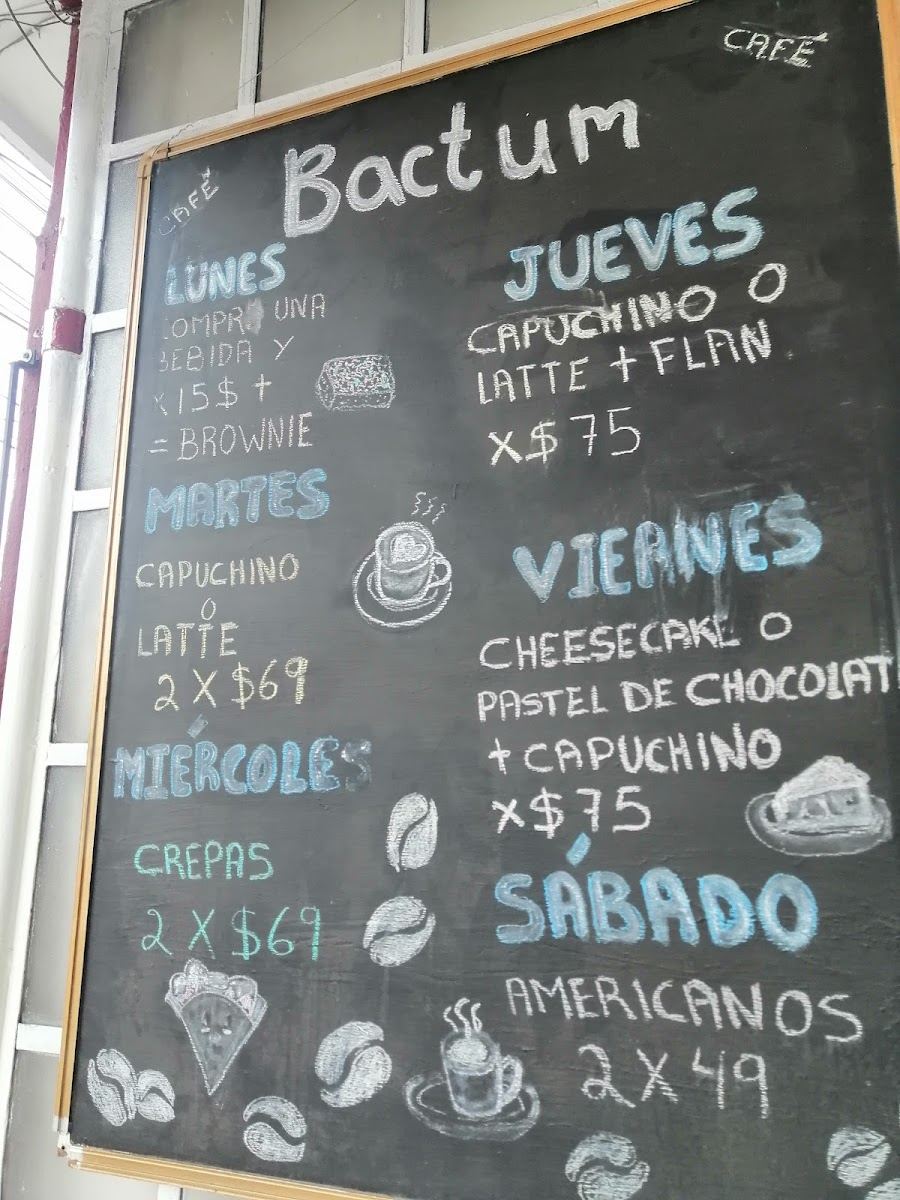 CAFÉ
CAFÉ
Bactum
LUNES
COMPRA UNA
BEBIDA Y
X 15$ +
= BROWNIE
MARTES
CAPUCHINO
Ó
LATTE
2 X $69
MIÉRCOLES
CREPAS
2 X $69
JUEVES
CAPUCHINO O
LATTE + FLAN
X $ 75
VIERNES
CHEESECAKE O
PASTEL DE CHOCOLAT
+ CAPUCHINO
X $ 75
SÁBADO
AMERICANOS
2 X 49